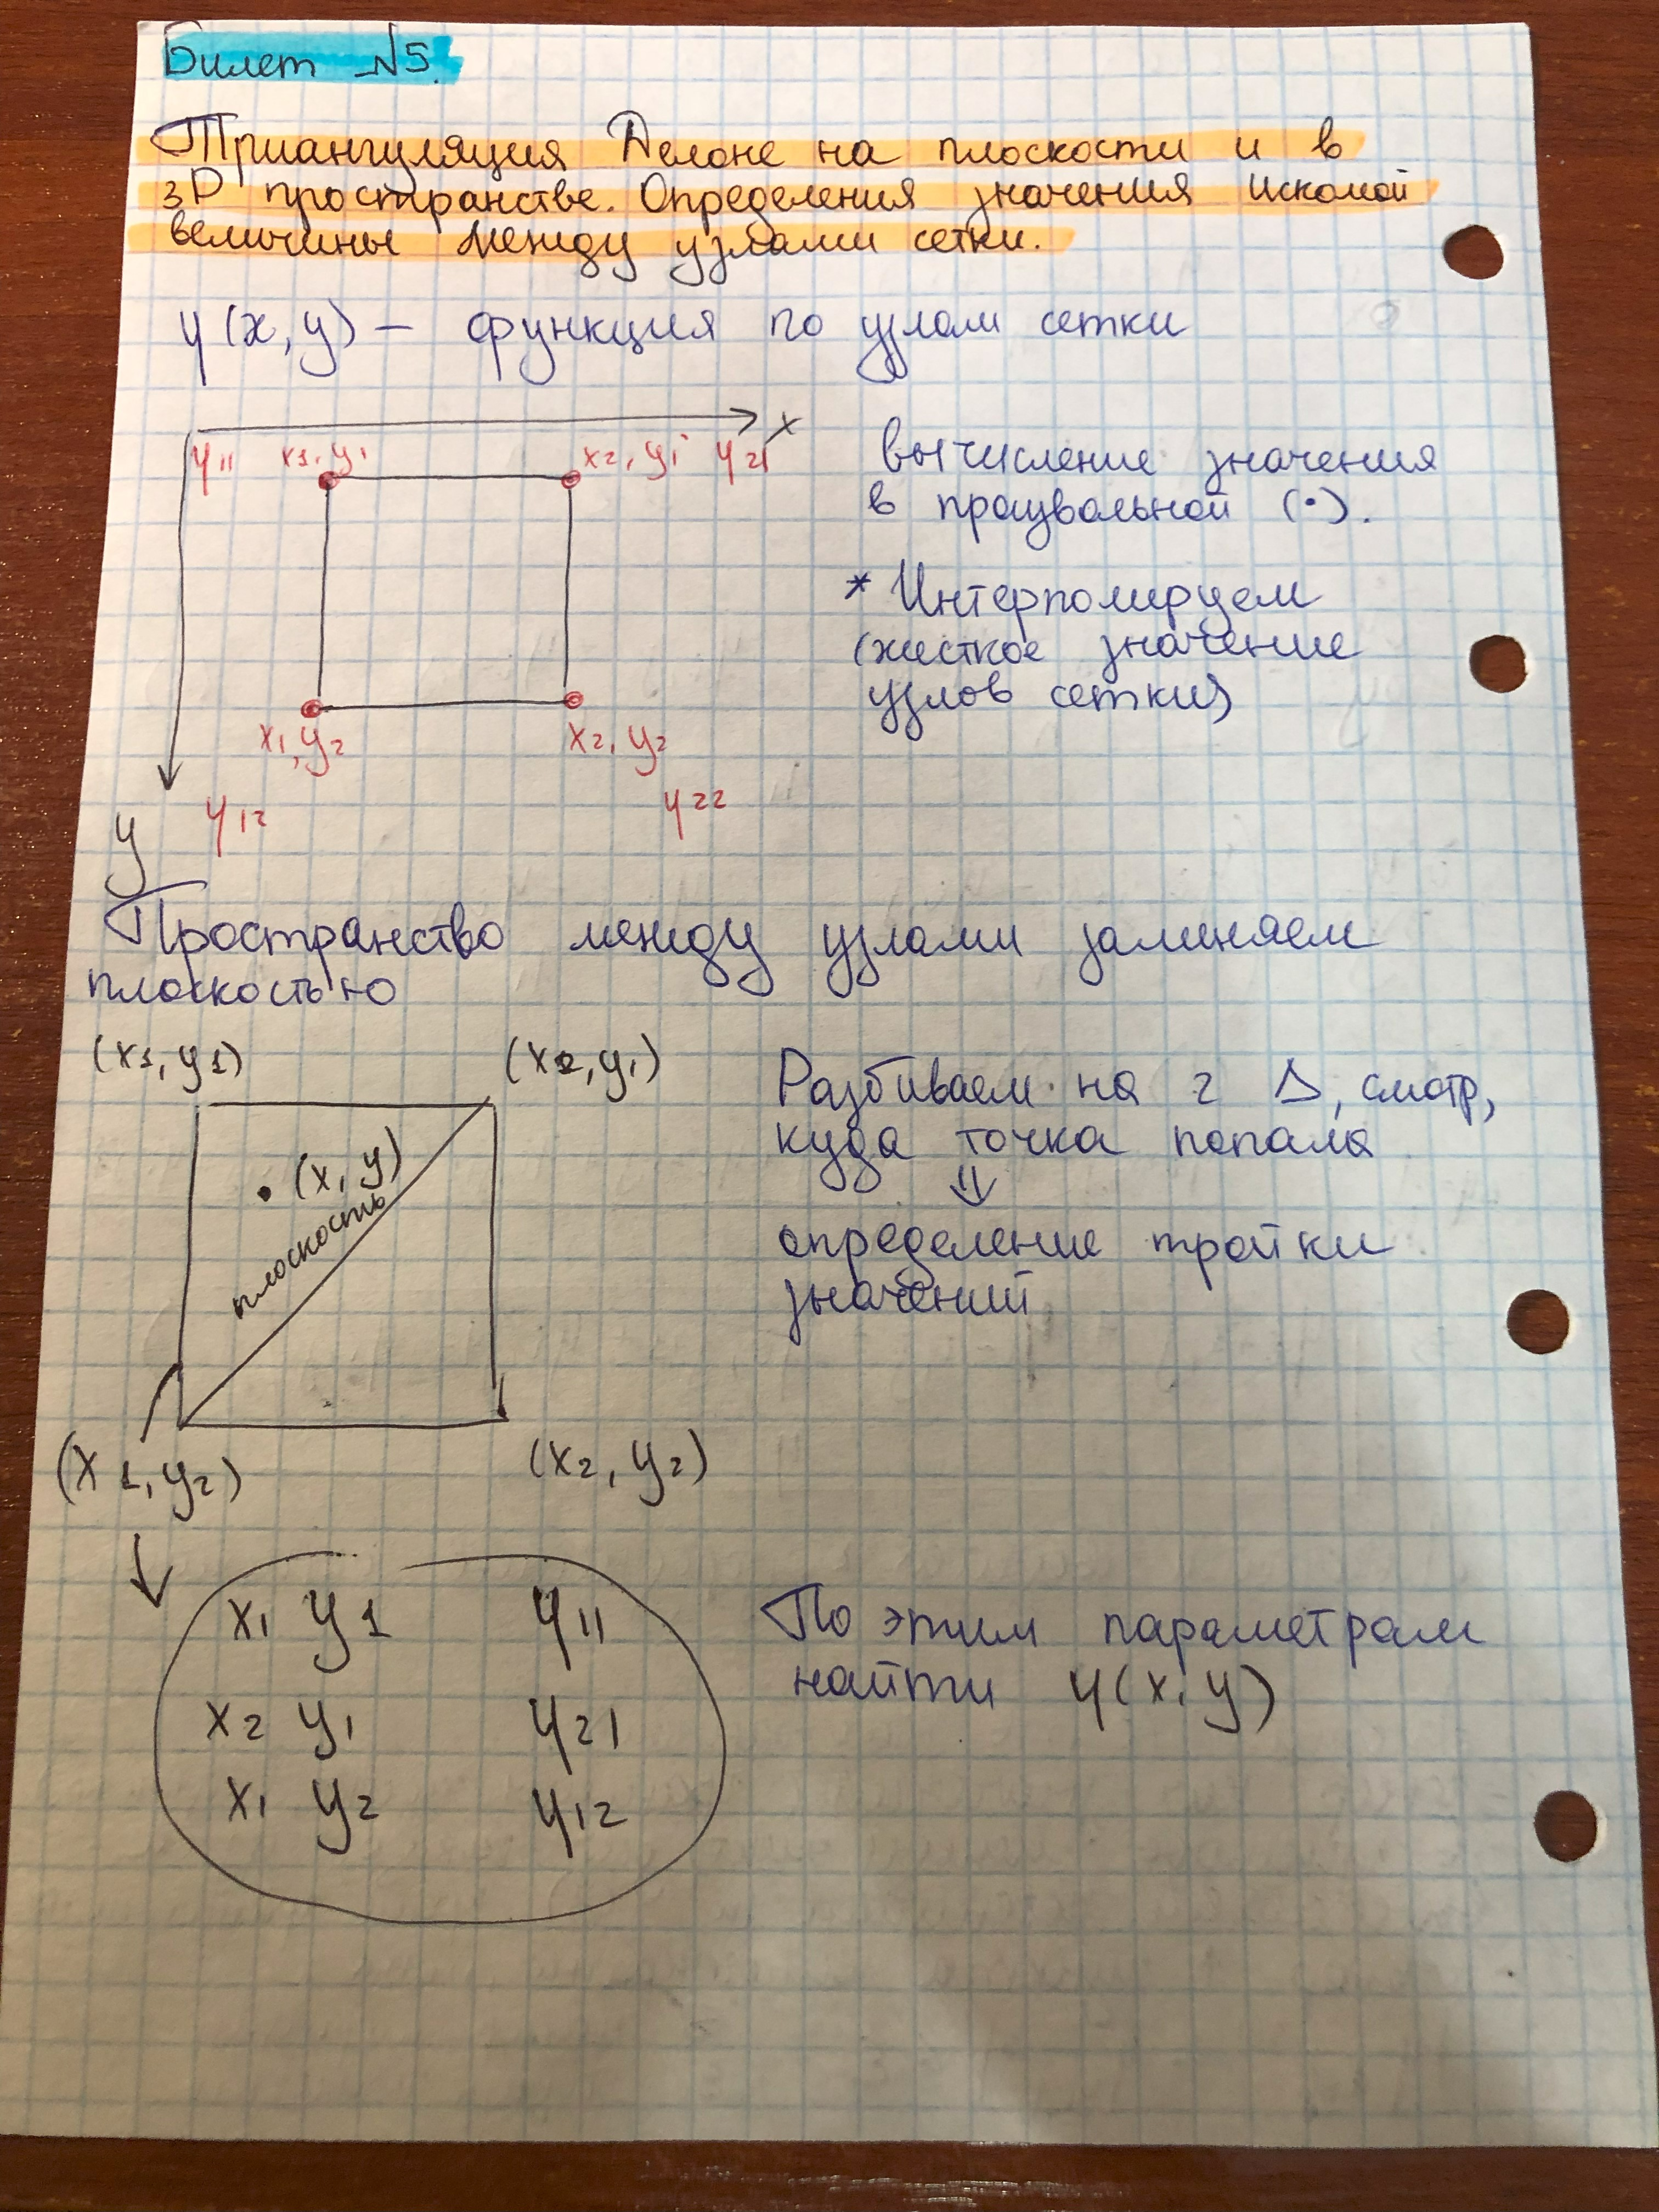 Билет №5.
Триангуляция Делоне на плоскости и в
3D пространстве. Определения значения искомой
величины между узлами сетки.
φ(x, y) – функция по узлам сетки
x
φ11 x1, y1
x2, y1 φ21
вычисление значения
в праизвольной (·).
* Интерполируем
(жесткое значение
узлов сетки)
x1, y2
x2, y2
φ12
φ22
y
Пространство между узлами заменяем
плоскостью
(x1, y1)
(x2, y1)
Разбиваем на 2 Δ, смотр,
куда точка попала
⇓
определение тройки
значений
• (x, y)
плоскость
(x1, y2)
(x2, y2)
x1 y1 φ11
x2 y1 φ21
x1 y2 φ12
По этим параметрам
найти φ(x, y)